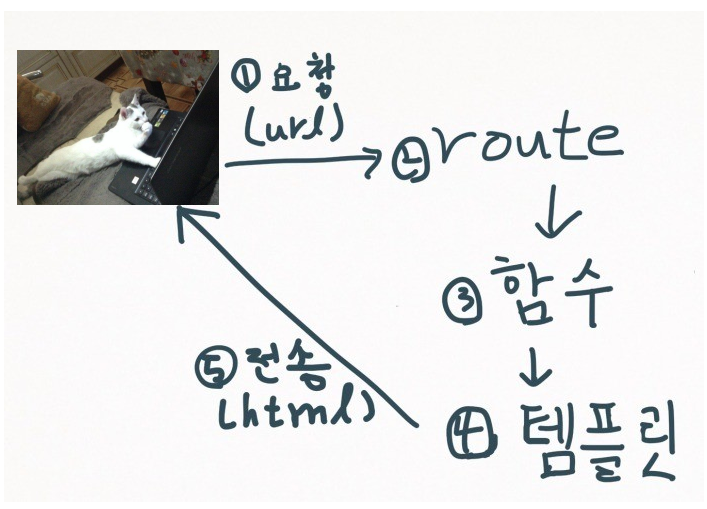 ① 요청
(url)
② route
③ 함수
④ 템플릿
⑤ 전송
(html)